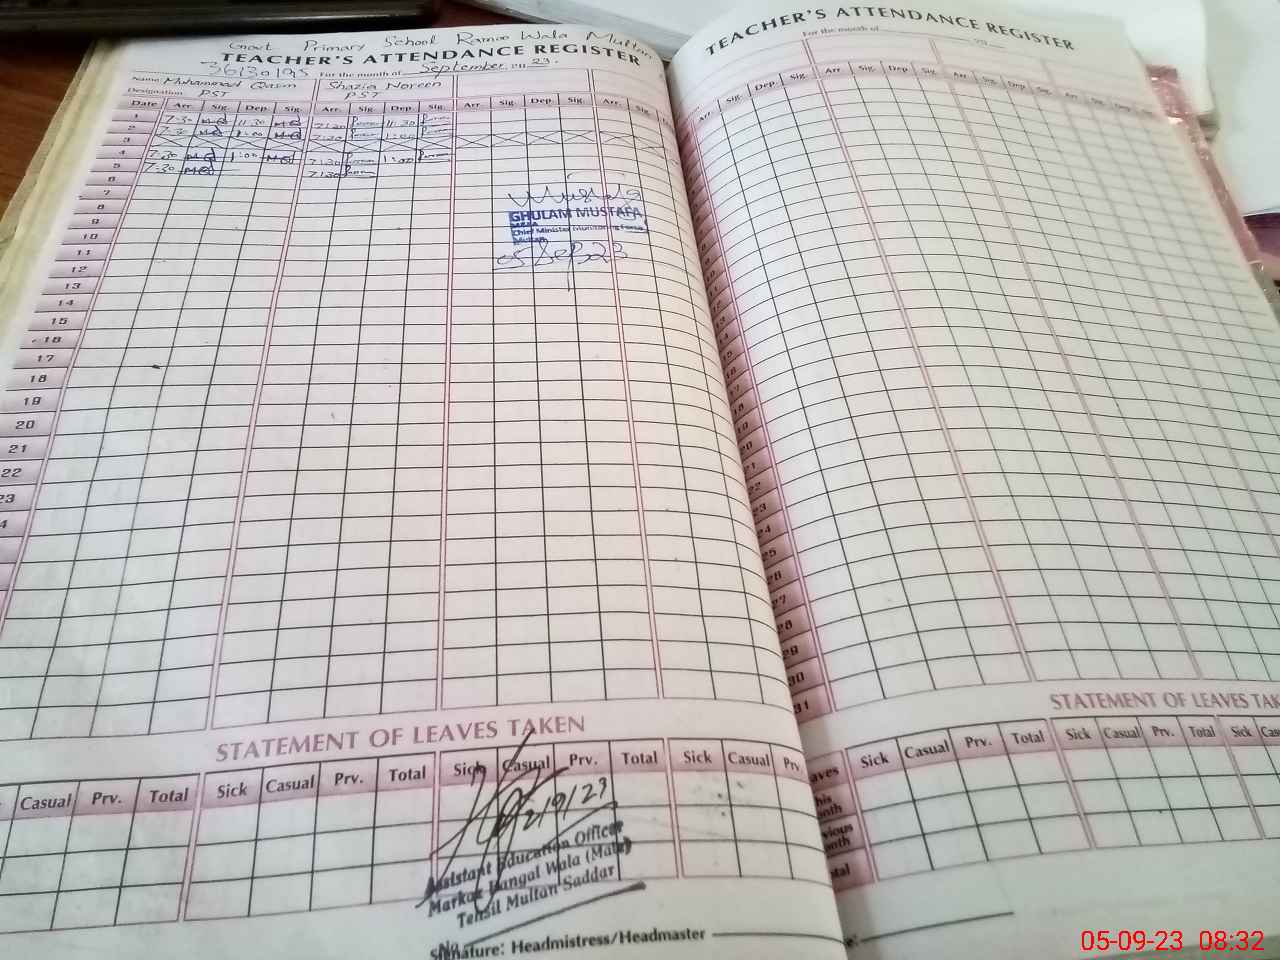 Govt Primary School Ramoo Wala Multan
TEACHER'S ATTENDANCE REGISTER
36130195 For the month of September 2023.
Name Muhammad Qasim Shazia Noreen
Designation PST PST
Date Arr. Sig. Dep. Sig. Arr. Sig. Dep. Sig. Arr. Sig. Dep. Sig. Arr. Sig.
1 7-30 MQ 11:30 MQ 7:30 11:30
2 7-30 MQ 1:00 MQ 7:30 1:00
3
4 7-30 MQ 1:00 MQ 7:30 1:00
5 7-30 MQ 7:30
6
7
8
9
10
11
12
13
14
15
16
17
18
19
20
21
22
23
4
Mustafa
GHULAM MUSTAFA
MEA
Chief Minister Monitoring Force
Multan
05 Sep 23
STATEMENT OF LEAVES TAKEN
Casual Prv. Total Sick Casual Prv. Total Sick Casual Prv. Total Sick Casual Prv.
2/9/23
Assistant Education Officer
Markaz Bangal Wala (Male)
Tehsil Multan Saddar
No
Signature: Headmistress/Headmaster
TEACHER'S ATTENDANCE REGISTER
For the month of 20
Arr. Sig. Dep. Sig. Arr. Sig. Dep. Sig. Arr. Sig. Dep. Sig. Arr. Sig. Dep.
8
9
10
11
12
13
14
15
16
17
18
19
20
21
22
23
24
25
26
27
28
29
30
31
STATEMENT OF LEAVES TAK
aves Sick Casual Prv. Total Sick Casual Prv. Total Sick Cas
his
onth
vious
onth
otal
05-09-23 08:32